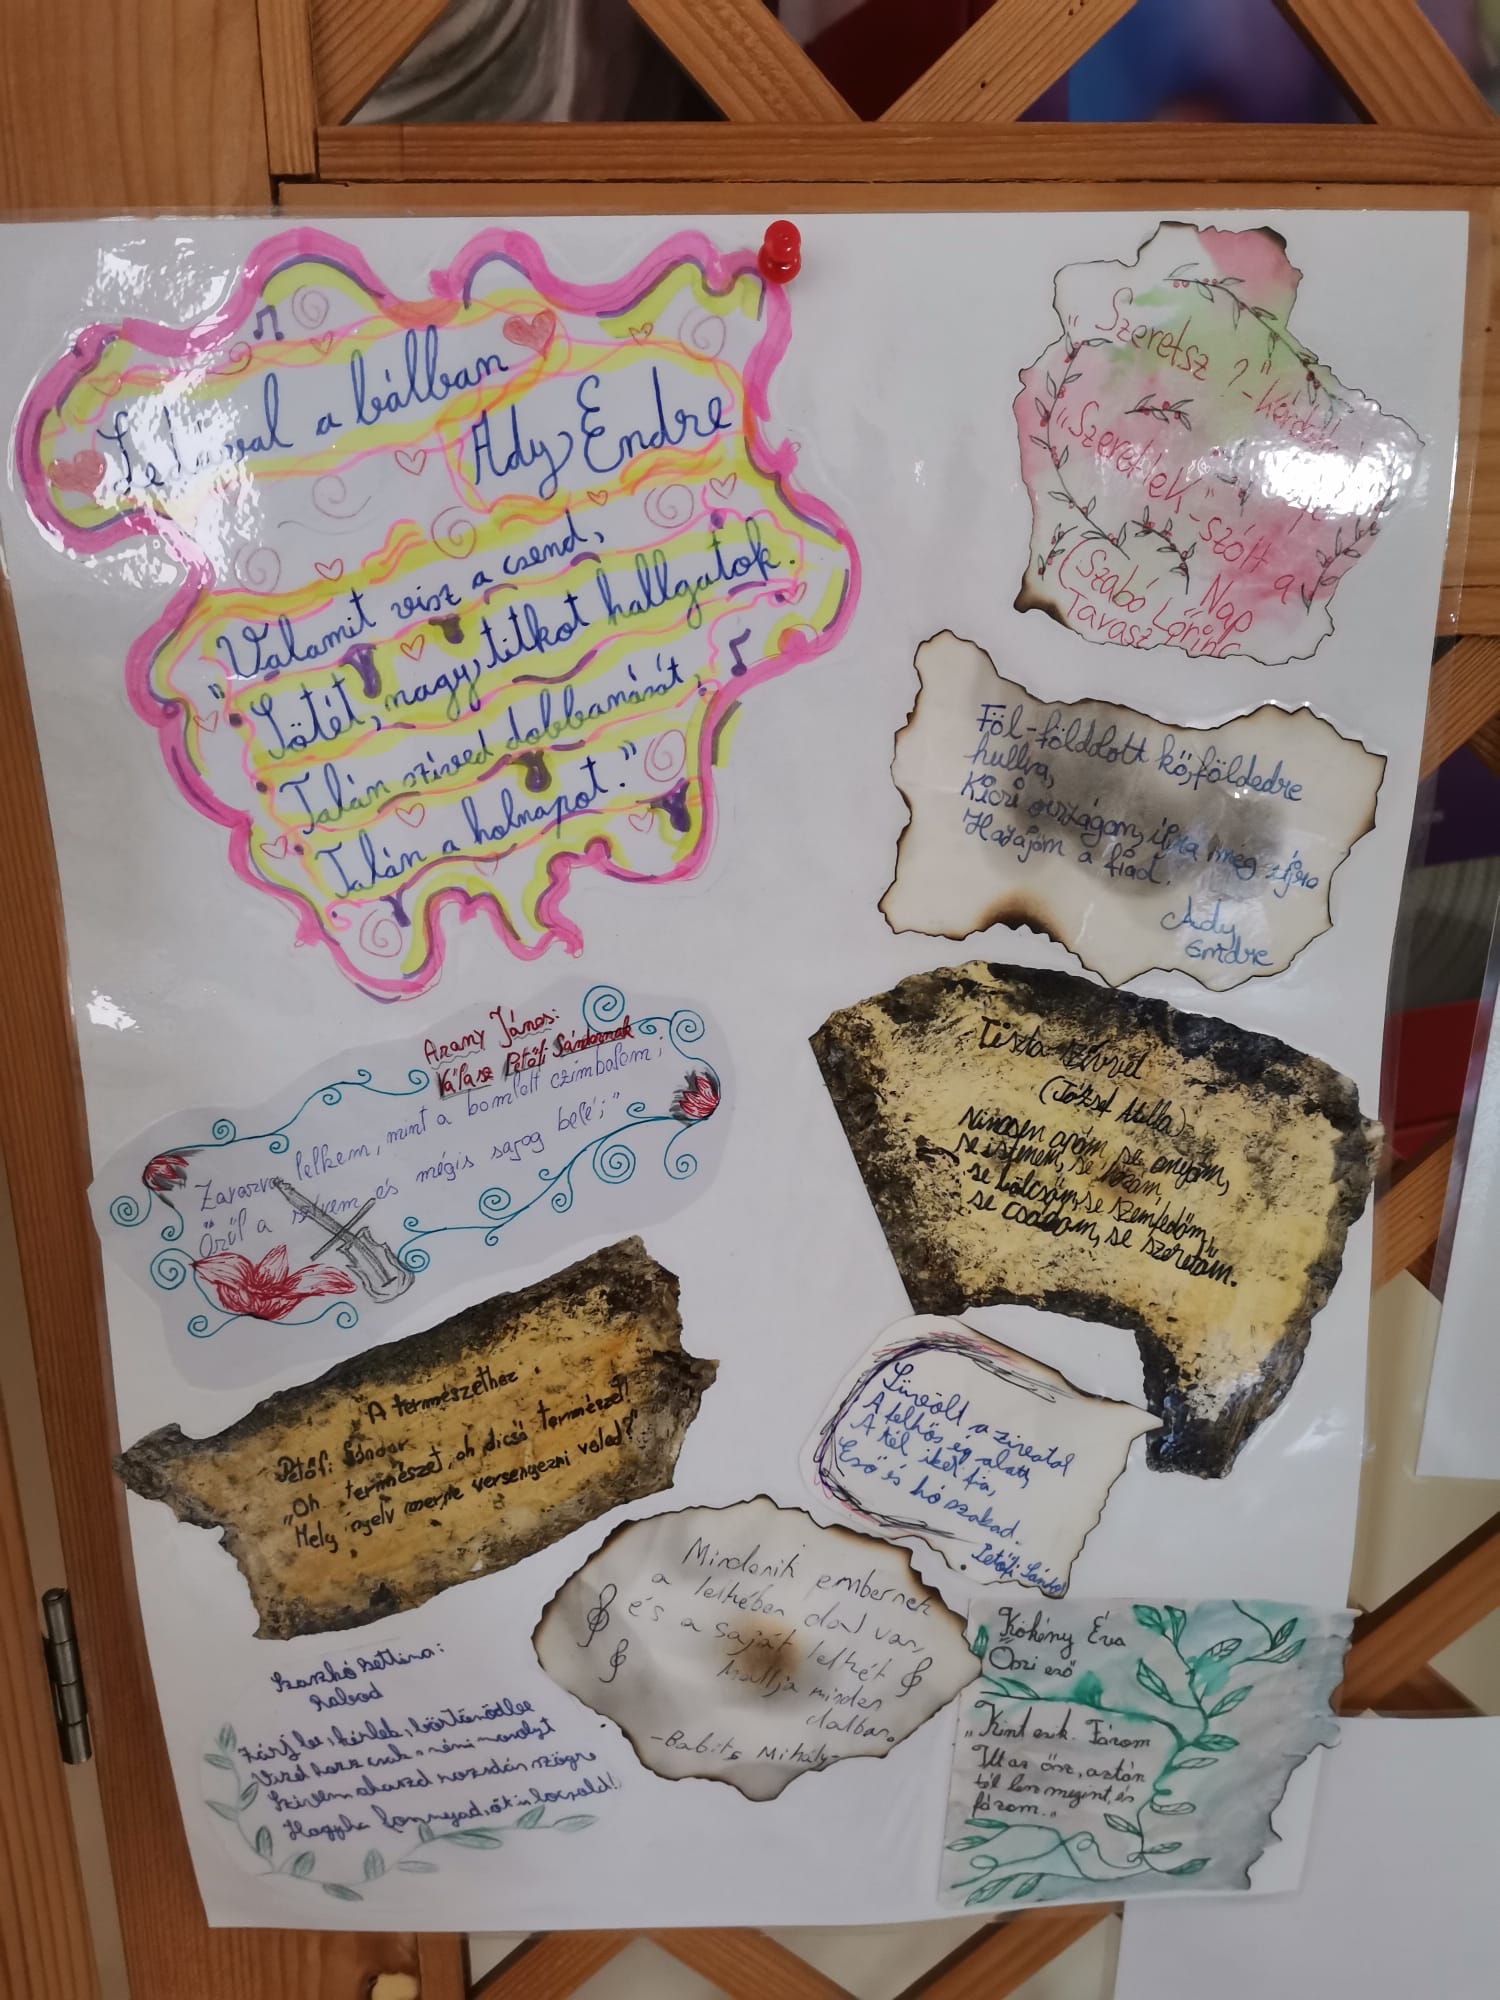 Lédával a bálban
Ady Endre
"Valamit visz a csend,
Sötét, nagy, titkot hallgatok.
Talán szíved dobbanását,
Talán a holnapot."
"Szeretsz?" - kérdezte
"Szeretlek" - szólt a
Nap
(Szabó Lőrinc
Tavasz
Föl-földdobott kő, földedre
hullva,
Kicsi országom, újra meg újra
Hazajöm a fiad.
Ady
Endre
Arany János:
Válasz Petőfi Sándornak
Zavarva lelkem, mint a bomlott czimbalom;
Örűl a szívem és mégis sajog belé;"
Tiszta szívvel
(József Attila)
Nincsen apám, se anyám,
se istenem, se hazám,
se bölcsőm, se szemfedőm,
se csókom, se szeretőm.
"A természethez
Petőfi Sándor
"Oh természet, oh dicső természet!
Mely nyelv merne versenyezni veled?"
Süvölt a zivatar
A felhős ég alatt,
A tél iker fia,
Eső és hó szakad.
Petőfi Sándor
Mindenik embernek
a lelkében dal van,
és a saját lelkét
hallja minden
dalban.
-Babits Mihály-
Szaszkó Bettina:
Rabod
Zárj be, kérlek, börtönödbe
Vizet hozz csak, némi mosolyt
Szívem akaszd rozsdás szögre
Hogyha fonnyad, őt is locsold!
Kökény Éva
Őszi eső
"Kint esik. Fázom
Itt az ősz, aztán
tél lesz megint, és
fázom."